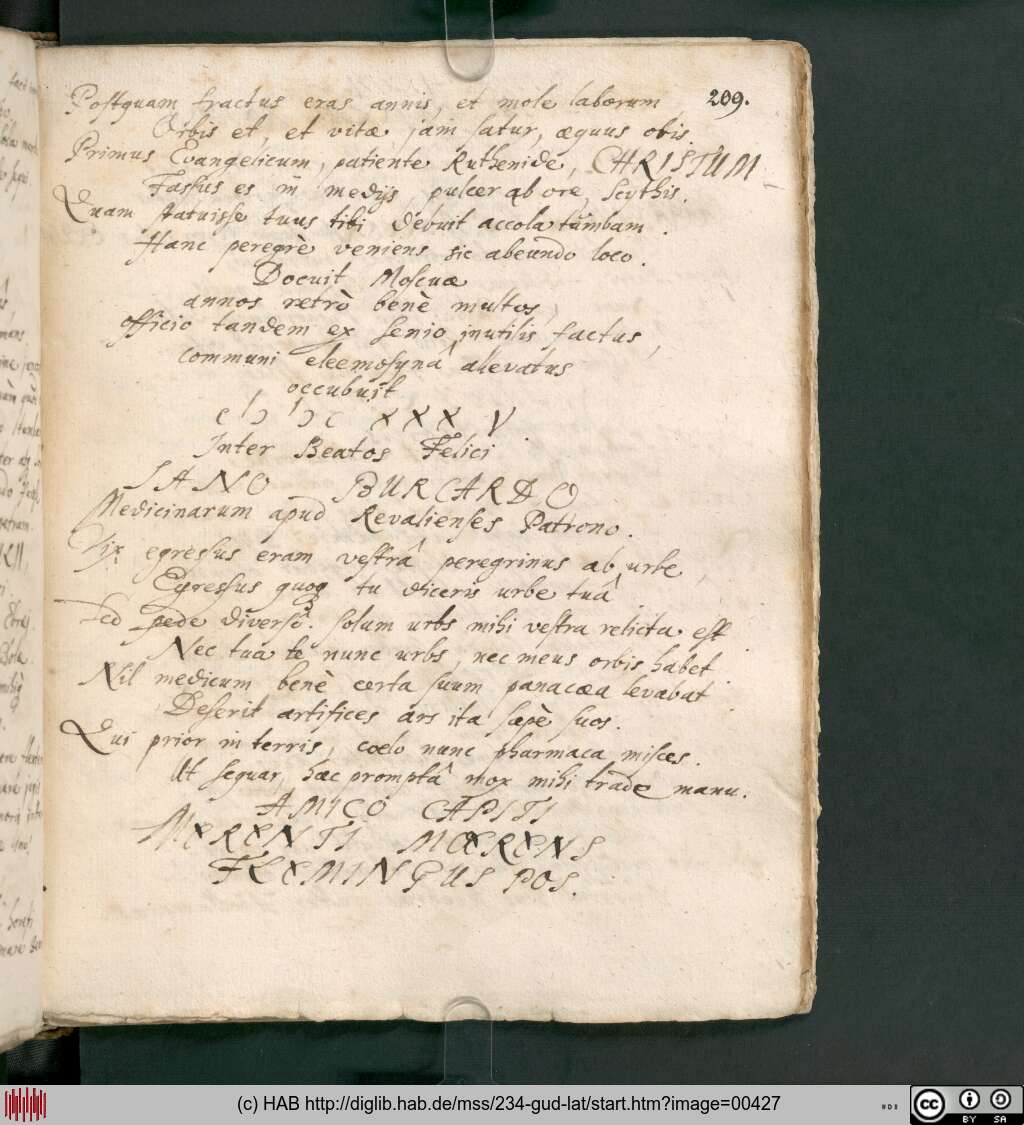 209.
Postquam fractus eras annis, et mole laborum
Orbis et, et vitæ jam satur, æquus obis.
Primus Evangelicum, patiente Ruthenide, CHRISTUM
Fassus es in medijs, pulcer ab ore, Scythis.
Quam statuisse tuus tibi debuit accola tumbam.
Hanc peregrè veniens sic abeundo loco.
Docuit Moscuæ
annos retrò benè multos,
officio tandem ex senio inutilis factus,
communi eleemosynâ allevatus
occubuit
cIↃ IↃc XXXV
Inter Beatos Felici
IANO BURCARDO
Medicinarum apud Revalienses Patrono.
Vix egressus eram vestrâ peregrinus ab urbe,
Egressus quoq tu diceris urbe tuâ
Sed pede diverso. solum urbs mihi vestra relicta est
Nec tua te nunc urbs, nec meus orbis habet.
Nil medicum benè certa suum panacæa levabat
Deserit artifices ars ita sæpè suos.
Qui prior in terris, coelo nunc pharmaca misces.
Ut sequar, hæc promptâ mox mihi trade manu.
AMICO CAPITI
MERENTI MŒRENS
FLEMINGUS POS.
(c) HAB http://diglib.hab.de/mss/234-gud-lat/start.htm?image=00427
cc BY SA